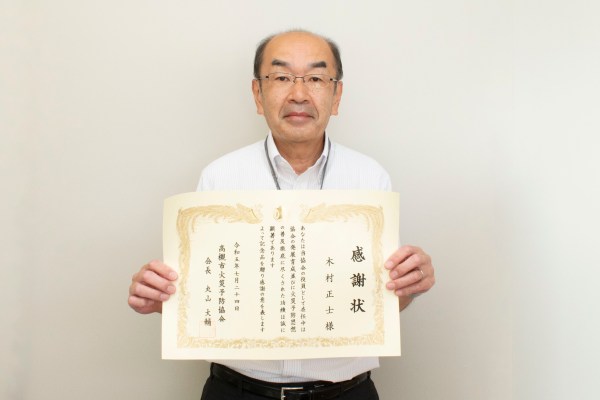 感謝状
木村正士様
あなたは当協会の役員として在任中は
協会の発展育成並びに火災予防思想
の普及徹底に尽くされた功績は誠に
顕著であります
よって記念品を贈り感謝の意を表します
令和五年七月二十四日
高槻市火災予防協会
会長 大山大輔